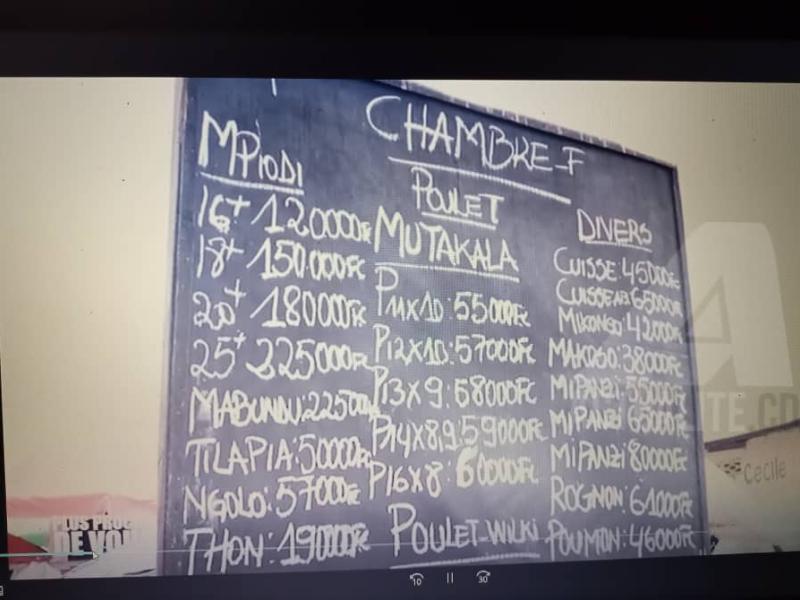 CHAMBRE-F
MPIODI
16+ 120000FC
18+ 150.000FC
20+ 180000FC
25+ 225000FC
MABUNDU:22500
TILAPIA:50000FC
NGOLO:57000FC
THON:19000FC
POULET
MUTAKALA
P11X10:55000FC
P12X10:57000FC
P13X9:58000FC
P14X8,9:59000FC
P16X8:60000FC
POULET-WILKI
DIVERS
CUISSE:45000FC
CUISSE 65000FC
MIKONGO:42000FC
MAKOSO:38000FC
MIPANZI:55000FC
MIPANZI:65000FC
MIPANZI:80000FC
ROGNON:61000FC
POUMON:46000FC
Cecile
PLUS PROC
DE VOU
UTE.CD
10
30